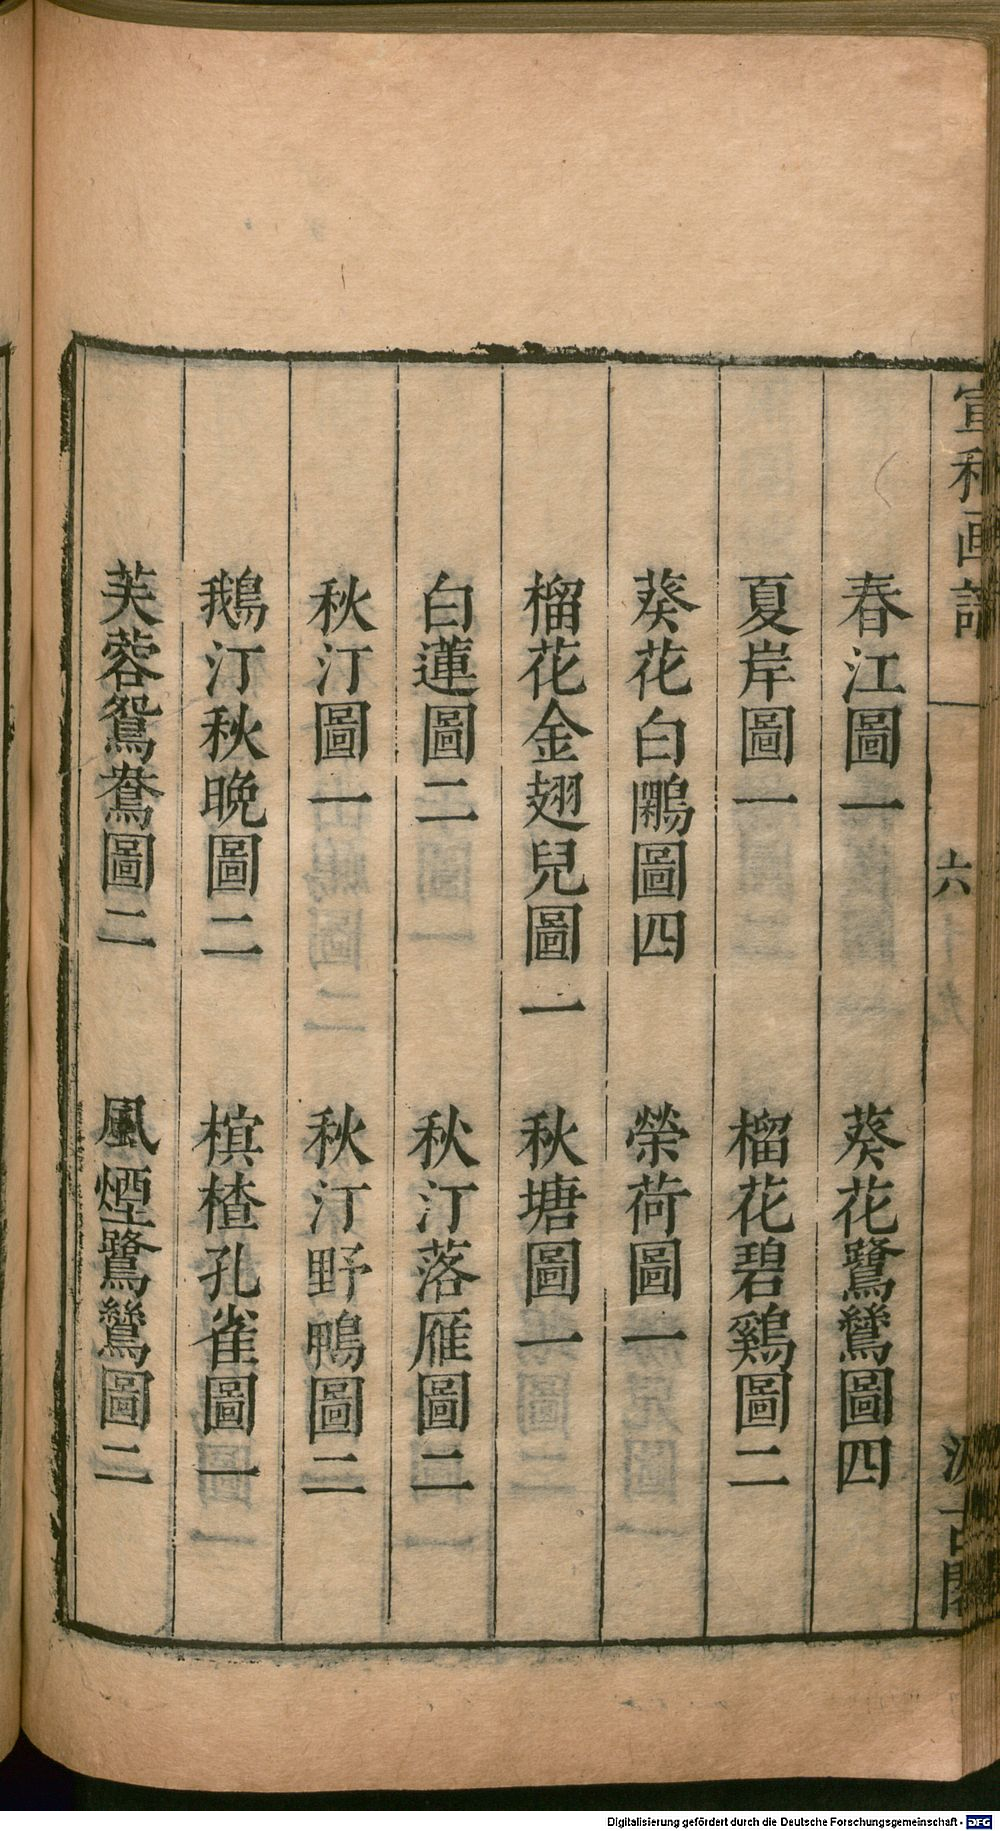 宣和画譜
六
十九
汲古閣
春江圖一　葵花鷺鷥圖四
夏岸圖一　榴花碧鷄圖二
葵花白鷴圖四　榮荷圖一
榴花金翅兒圖一　秋塘圖一
白蓮圖二　秋汀落雁圖二
秋汀圖一　秋汀野鴨圖二
鵝汀秋晚圖二　槟楂孔雀圖一
芙蓉鴛鴦圖二　風煙鷺鷥圖二
Digitalisierung gefördert durch die Deutsche Forschungsgemeinschaft - DFG